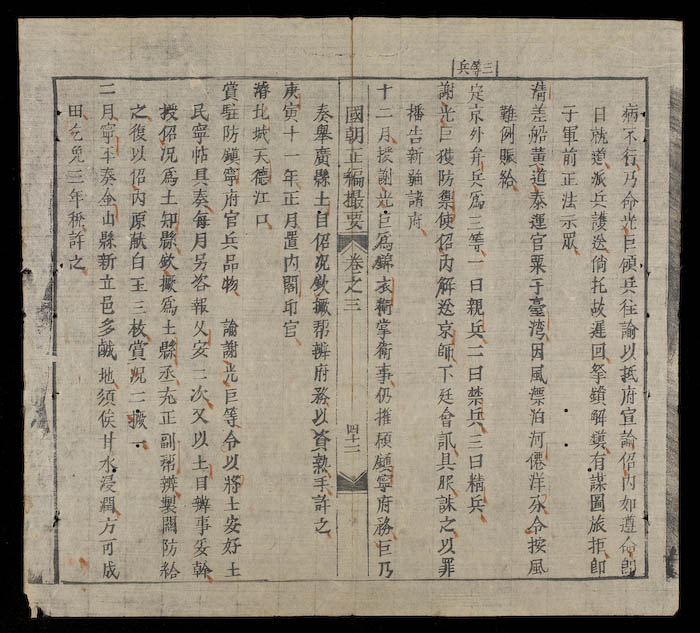 三等兵
病不行乃命光巨領兵往諭以抵府宣諭侶内如遵命即
日就道派兵護送倘托故遲回拏鎖解鎮有謀圖旅拒即
于軍前正法示眾
清差船黄道泰運官粟于臺灣因風漂泊河僊洋分令按風
難例賑給
定京外弁兵爲三等一曰親兵二曰禁兵三曰精兵
謝光巨獲防禦使侶内解送京師下廷會訊具服誅之以罪
播告新疆諸府
十二月授謝光巨爲錦衣衛掌衛事仍權領鎮寧府務巨乃
國朝正編撮要 卷之三 四十二
奏舉廣縣土目侶况欽撅帮辨府務以資熟手許之
庚寅十一年正月置内閣印官
濬北城天德江口
賞駐防鎮寧府官兵品物 諭謝光巨等令以將土安好土
民寧帖具奏每月另咨報乂安二次又以土目辨事妥幹
授侶况爲土知縣欽撅爲土縣丞充正副帮辨製關防給
之復以侶内原獻白玉三枚賞况二撅一
二月寧平奏金山縣新立邑多鹹地須俟甘水浸潤方可成
田乞免三年稅許之